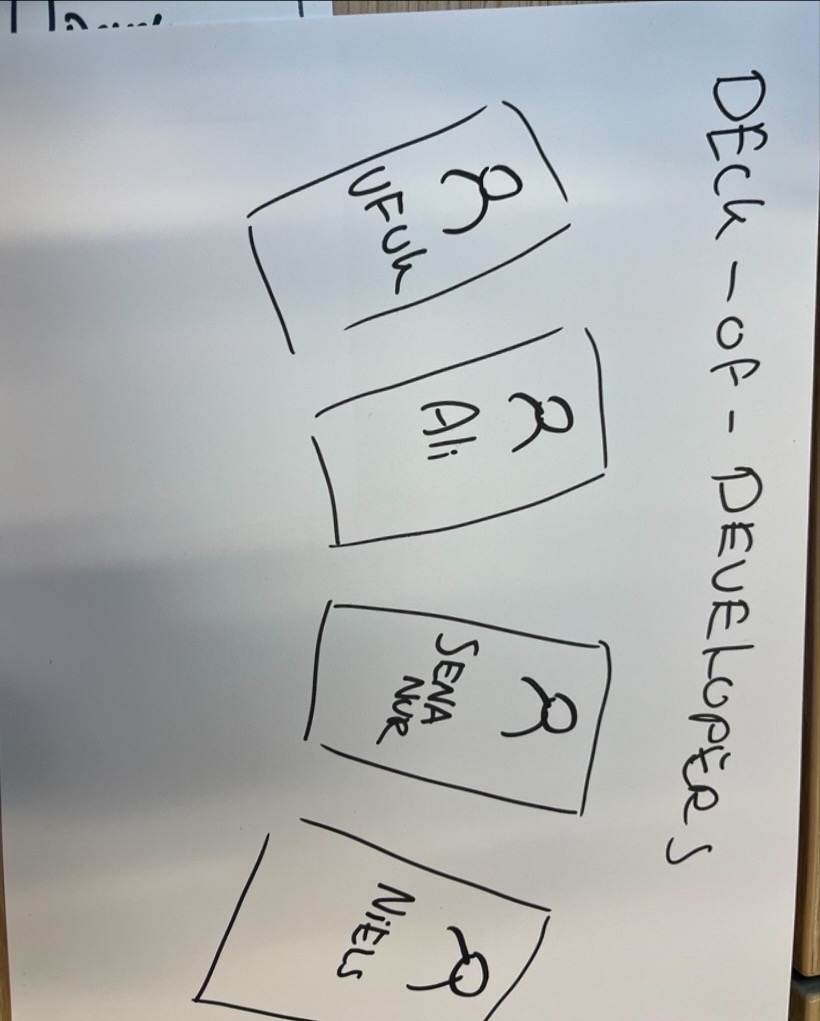 DECk-of-DEVELOPERS
UFUk
Ali
SENA
NUR
NiELS